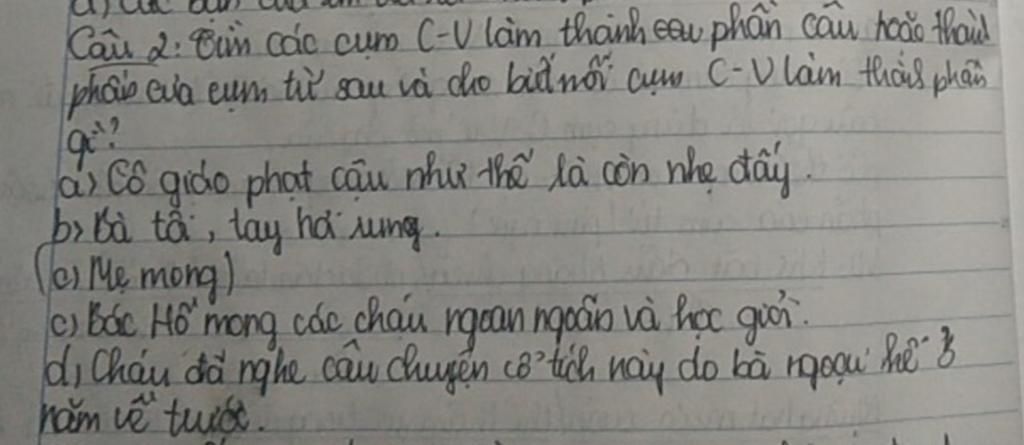 a) các bạn của em
Câu 2: Tìm các cụm C-V làm thành phần câu hoặc thành
phần của cụm từ sau và cho biết mỗi cụm C-V làm thành phần
gì?
a) Cô giáo phạt cậu như thế là còn nhẹ đấy.
b) Bà tôi, tay hơi rung.
(c) Mẹ mong)
c) Bác Hồ mong các cháu ngoan ngoãn và học giỏi.
d) Cháu đã nghe câu chuyện cổ tích này do bà ngoại kể 3
năm về trước.